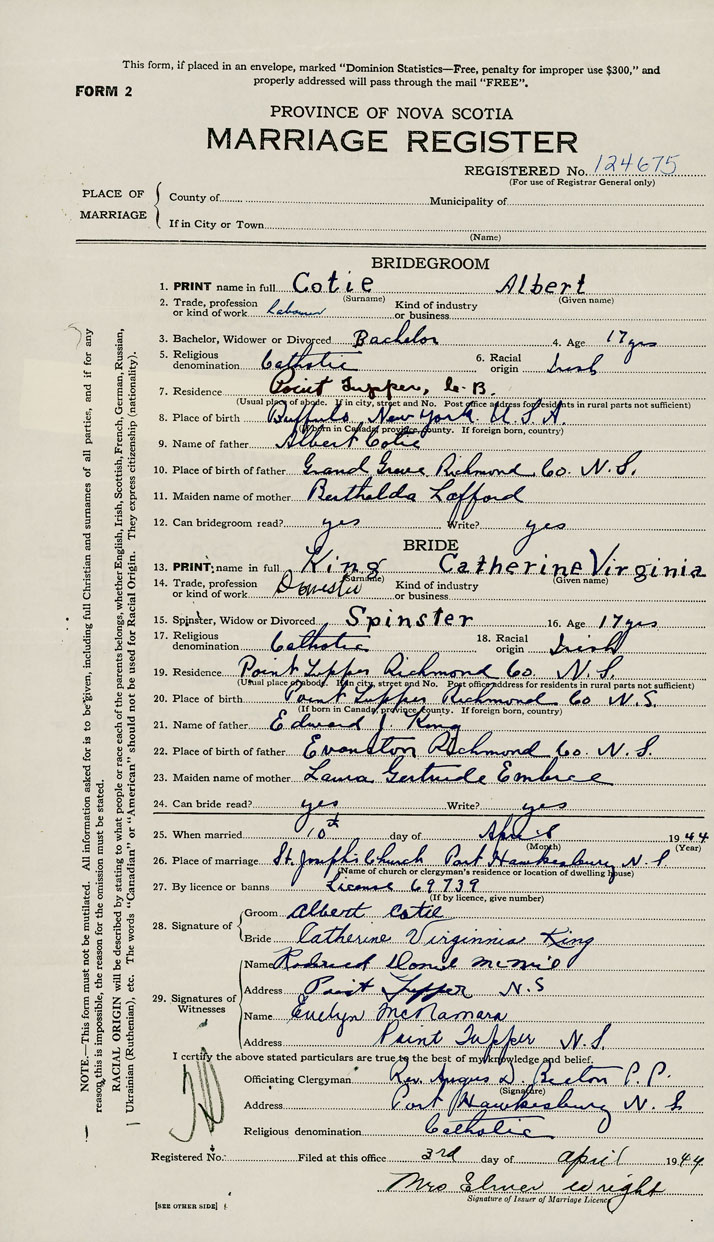 This form, if placed in an envelope, marked “Dominion Statistics—Free, penalty for improper use $300,” and
properly addressed will pass through the mail “FREE”.
FORM 2
PROVINCE OF NOVA SCOTIA
MARRIAGE REGISTER
REGISTERED No. 124675
(For use of Registrar General only)
PLACE OF MARRIAGE
County of Municipality of
If in City or Town
(Name)
BRIDEGROOM
1. PRINT name in full Cotie Albert
(Surname) (Given name)
2. Trade, profession or kind of work Labourer Kind of industry or business
3. Bachelor, Widower or Divorced Bachelor 4. Age 17 yrs
5. Religious denomination Catholic 6. Racial origin Irish
7. Residence Point Tupper, C. B.
(Usual place of abode. If in city, street and No. Post office address for residents in rural parts not sufficient)
8. Place of birth Buffulo New York U. S. A.
(If born in Canada, province, county. If foreign born, country)
9. Name of father Albert Cotie
10. Place of birth of father Grand Greve Richmond Co. N. S.
11. Maiden name of mother Berthalda Lafford
12. Can bridegroom read? yes Write? yes
BRIDE
13. PRINT name in full King Catherine Virginia
(Surname) (Given name)
14. Trade, profession or kind of work Domestic Kind of industry or business
15. Spinster, Widow or Divorced Spinster 16. Age 17 yrs
17. Religious denomination Catholic 18. Racial origin Irish
19. Residence Point Tupper Richmond Co. N. S.
(Usual place of abode. If in city, street and No. Post office address for residents in rural parts not sufficient)
20. Place of birth Point Tupper Richmond Co N. S.
(If born in Canada, province, county. If foreign born, country)
21. Name of father Edward J. King
22. Place of birth of father Evanston Richmond Co. N. S.
23. Maiden name of mother Laura Gertrude Embree
24. Can bride read? yes Write? yes
25. When married 10th day of April 1944
(Month) (Year)
26. Place of marriage St. Joseph's Church Port Hawkesbury N. S
(Name of church or clergyman's residence or location of dwelling house)
27. By licence or banns License 69739
(If by licence, give number)
28. Signature of
Groom Albert Cotie
Bride Catherine Virginnia King
29. Signatures of Witnesses
Name
Address Point Tupper N. S
Name Evelyn McNamara
Address Point Tupper N. S.
I certify the above stated particulars are true to the best of my knowledge and belief.
Officiating Clergyman Rev. Angus D. Beaton P. P.
(Signature)
Address Port Hawkesbury N. S
Religious denomination Catholic
Registered No. Filed at this office 3rd day of april 1944
Mrs Elmer Wright
Signature of Issuer of Marriage Licence
[SEE OTHER SIDE]
NOTE.—This form must not be mutilated. All information asked for is to be given, including full Christian and surnames of all parties, and if for any
reason this is impossible, the reason for the omission must be stated.
RACIAL ORIGIN will be described by stating to what people or race each of the parents belongs, whether English, Irish, Scottish, French, German, Russian,
Ukrainian (Ruthenian), etc. The words “Canadian” or “American” should not be used for Racial Origin. They express citizenship (nationality).